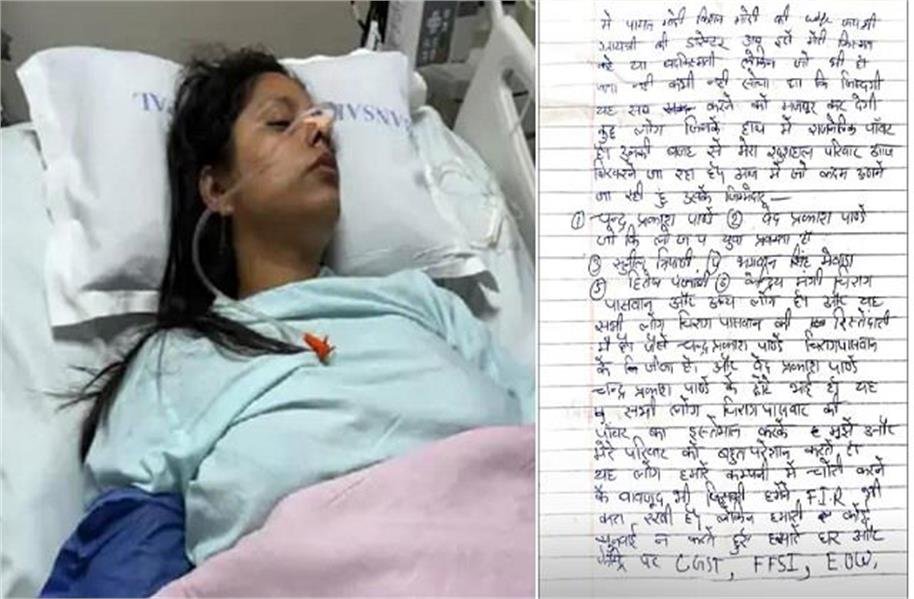 ANSAL
AL
मे पायल मोदी किशन मोदी की वाईफ जयश्री
गायत्री की डारेक्टर आप इसे मेरी किस्मत
कहे या बदकिस्मती लेकिन जो भी हो
नही कभी नही सोचा था कि जिंदगी
यह सब करने को मजबूर कर देगी
कुछ लोग जिनके हाथ में राजनैतिक पॉवर
है। उनकी वजह से मेरा खुशहाल परिवार आज
बिखरने जा रहा है। आज में जो कदम उठाने
जा रही हूं उसके जिम्मेदार —
① चन्द्र प्रकाश पाण्डे ② वेद प्रकाश पाण्डे
जो कि लो ज प युवा प्रवक्ता है
③ सुनील त्रिपाठी, ④ भगवान सिंह मेवाड़ा
⑤ हितेश पंजाबी ⑥ केन्द्रिय मंत्री चिराग
पासवान और अन्य लोग है। और यह
सभी लोग चिराग पासवान की रिस्तेदारी
में है। जैसे चन्द्रप्रकाश पाण्डे चिराग पासवान
के जीजा है। और वेद प्रकाश पाण्डे
चन्द्र प्रकाश पाण्डे के छोटे भाई है। यह
सभी लोग चिराग पासवान की
पॉवर का इस्तेमाल करके मुझे और
मेरे परिवार को बहुत परेशान करते है।
यह लोग हमारे कम्पनी में चोरी करने
के बावजूद भी जिसकी हमने, F.I.R भी
करा रखी है। लेकिन हमारी कोई
सुनवाई न करते हुए हमारे घर और
पर CGST, FFSI, E.O.W.